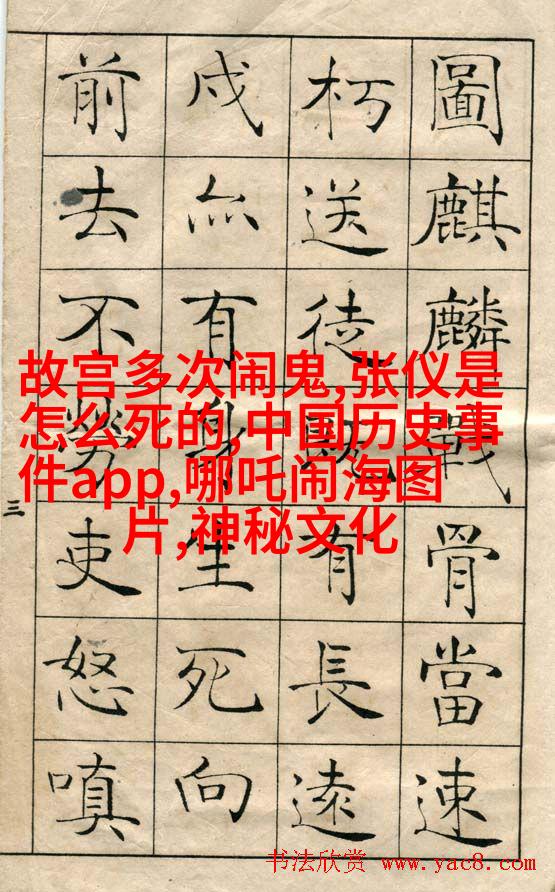 圖麒麟戰骨當速
朽送徒既有長遠
戍亦有身生死向
前去不勞吏怒嗔
三
故宫多次闹鬼,张仪是
怎么死的,中国历史事
件app,哪吒闹海图
片,神秘文化
书法欣赏 www.yac8.com